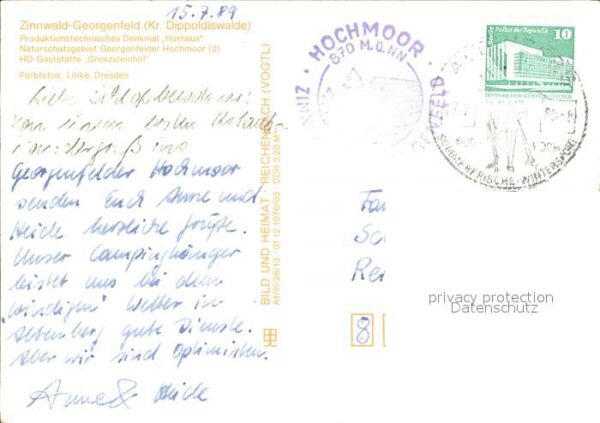 15.7.89
Zinnwald-Georgenfeld (Kr. Dippoldiswalde)
Produktionstechnisches Denkmal „Huthaus"
Naturschutzgebiet Georgenfelder Hochmoor (2)
HO-Gaststätte „Grenzsteinhof"
Farbfotos: Linke, Dresden
Liebe
Von einem ersten
ins
Georgenfelder Hochmoor
senden Euch Anne und
Heide herzliche Grüße.
Unser Campinghänger
leistet uns bei dem
"windigen" Wetter in
Altenberg gute Dienste.
Aber wir sind Optimisten.
Anne & Heide
BILD UND HEIMAT REICHENBACH (VOGTL)
A1/III/26/13 01 12 1076/03 DDR 0,20 M
HOCHMOOR
870 M.Ü.NN
Palast der Republik
10
SOMMERFRISCHE WINTERSPORT
Fa
Sc
Re
8
privacy protection
Datenschutz